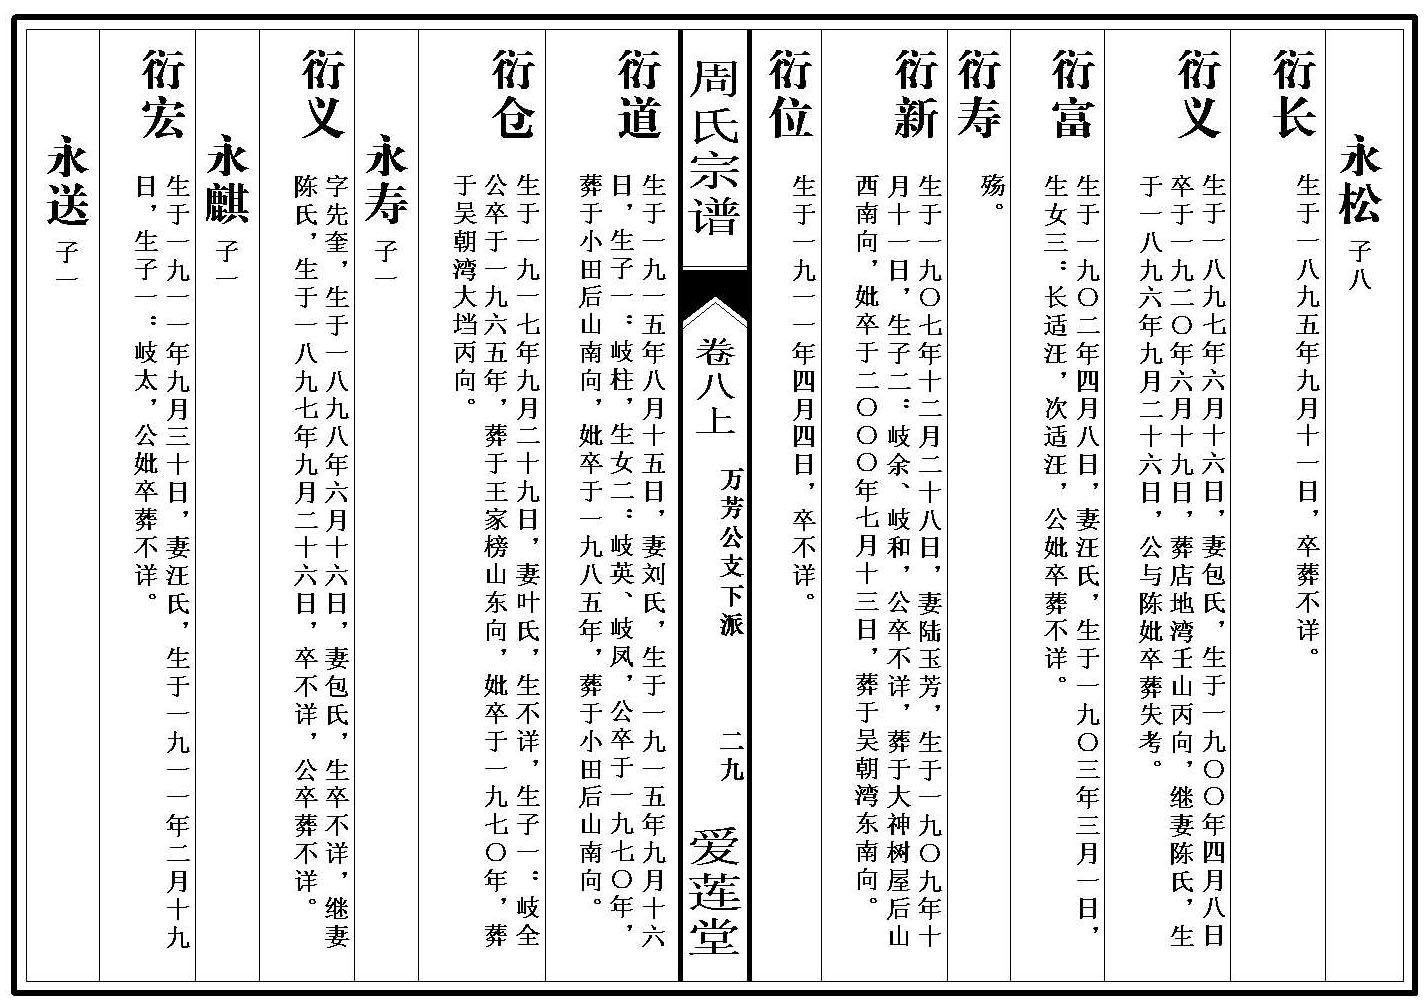 永松 子八
衍长
生于一八九五年九月十一日，卒葬不详。
衍义
生于一八九七年六月十六日，妻包氏，生于一九〇〇年四月八日
卒于一九二〇年六月十九日，葬店地湾壬山丙向，继妻陈氏，生
于一八九六年九月二十六日，公与陈妣卒葬失考。
衍富
生于一九〇二年四月八日，妻汪氏，生于一九〇三年三月一日，
生女三：长适汪，次适汪，公妣卒葬不详。
衍寿
殇。
衍新
生于一九〇七年十二月二十八日，妻陆玉芳，生于一九〇九年十
月十一日，生子二：岐余、岐和，公卒不详，葬于大神树屋后山
西南向，妣卒于二〇〇〇年七月十三日，葬于吴朝湾东南向。
衍位
生于一九一一年四月四日，卒不详。
周氏宗谱
卷八上
万芳公支下派
二九
爱莲堂
衍道
生于一九一五年八月十五日，妻刘氏，生于一九一五年九月十六
日，生子一：岐柱，生女二：岐英、岐凤，公卒于一九七〇年，
葬于小田后山南向，妣卒于一九八五年，葬于小田后山南向。
衍仓
生于一九一七年九月二十九日，妻叶氏，生不详，生子一：岐全
公卒于一九六五年，葬于王家榜山东向，妣卒于一九七〇年，葬
于吴朝湾大垱丙向。
永寿 子一
衍义
字先奎，生于一八九八年六月十六日，妻包氏，生卒不详，继妻
陈氏，生于一八九七年九月二十六日，卒不详，公卒葬不详。
永麒 子一
衍宏
生于一九一一年九月三十日，妻汪氏，生于一九一一年二月十九
日，生子一：岐太，公妣卒葬不详。
永送 子一